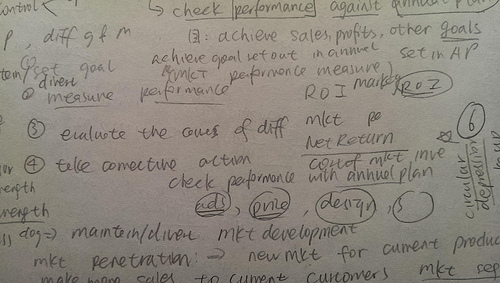 control
↳ check performance against annual plan
P, diff g f m
: achieve sales, profits, other goals
achieve goal set out in annual set in AP
set goal
(mkt performance measure)
divert
measure performance
ROI market ROI
③ evaluate the causes of diff mkt pe
Net Return
cost of mkt inve
④ take corrective action
check performance with annual plan
ads, price, design, S
6
circular
depression
dog => maintain/divert mkt development
mkt penetration: => new mkt for current produc
make more sales to current customers mkt seg